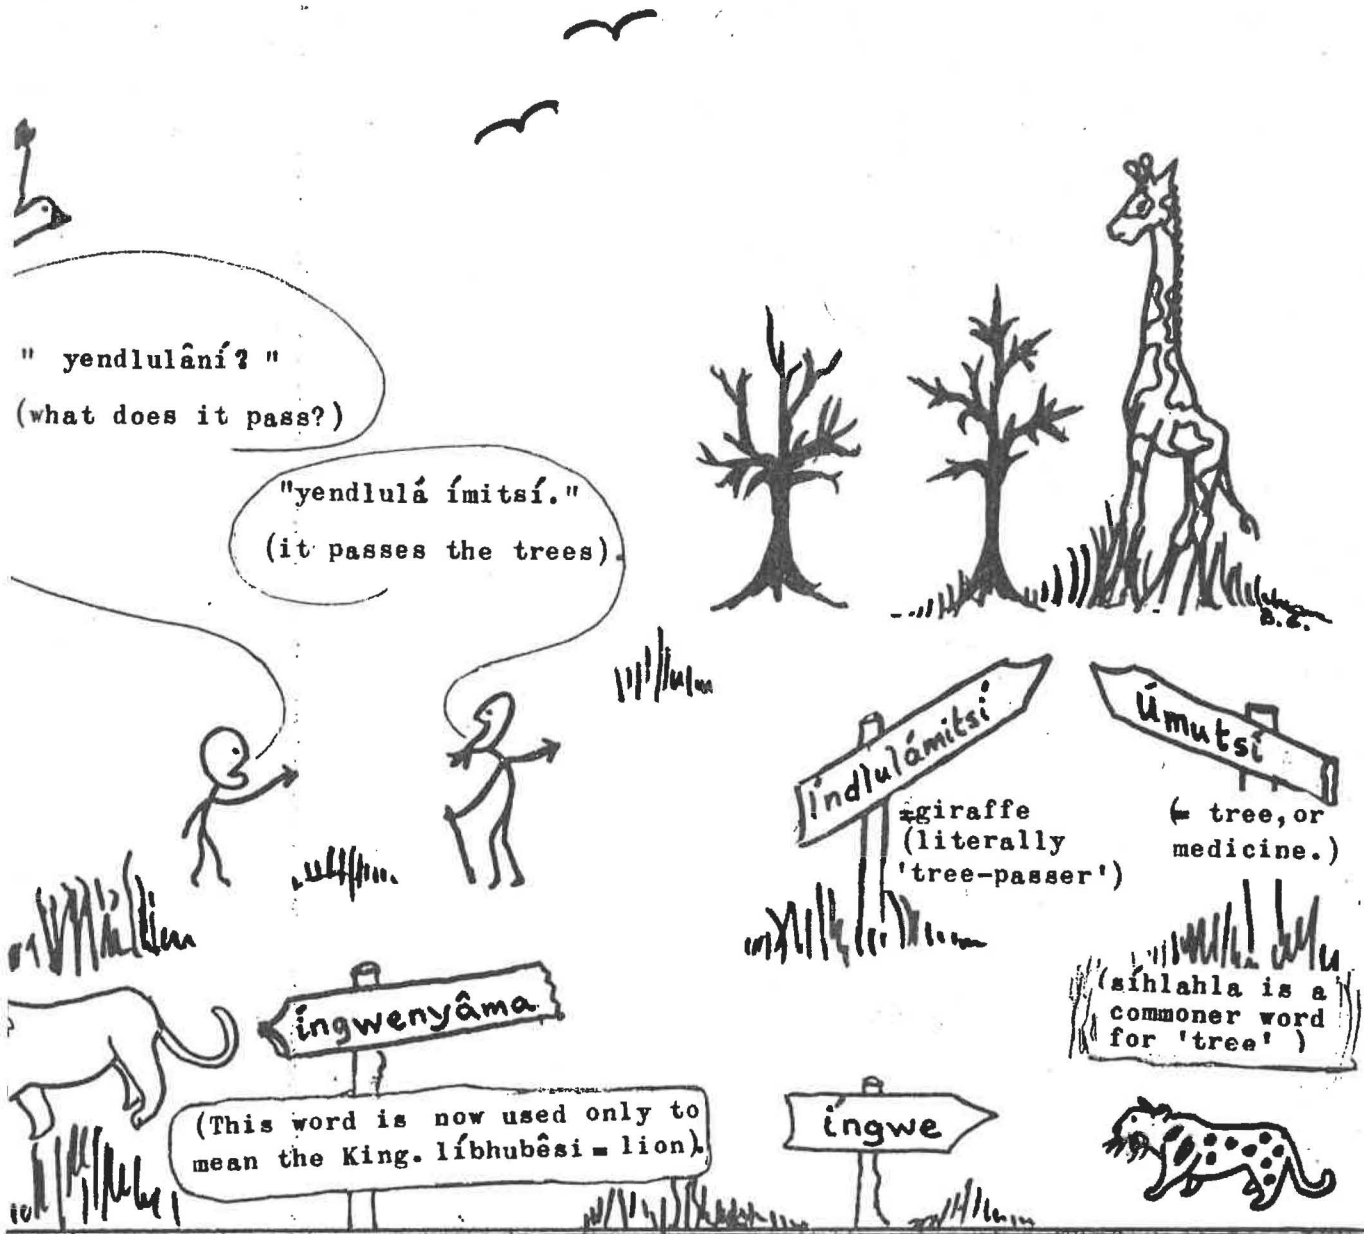 " yendlulâní? "
(what does it pass?)
"yendlulá ímitsí."
(it passes the trees).
B.G.
índlulámitsí
=giraffe
(literally
'tree-passer')
Úmutsí
(= tree, or
medicine.)
(síhlahla is a
commoner word
for 'tree' )
íngwenyâma
(This word is now used only to
mean the King. líbhubêsi = lion).
íngwe